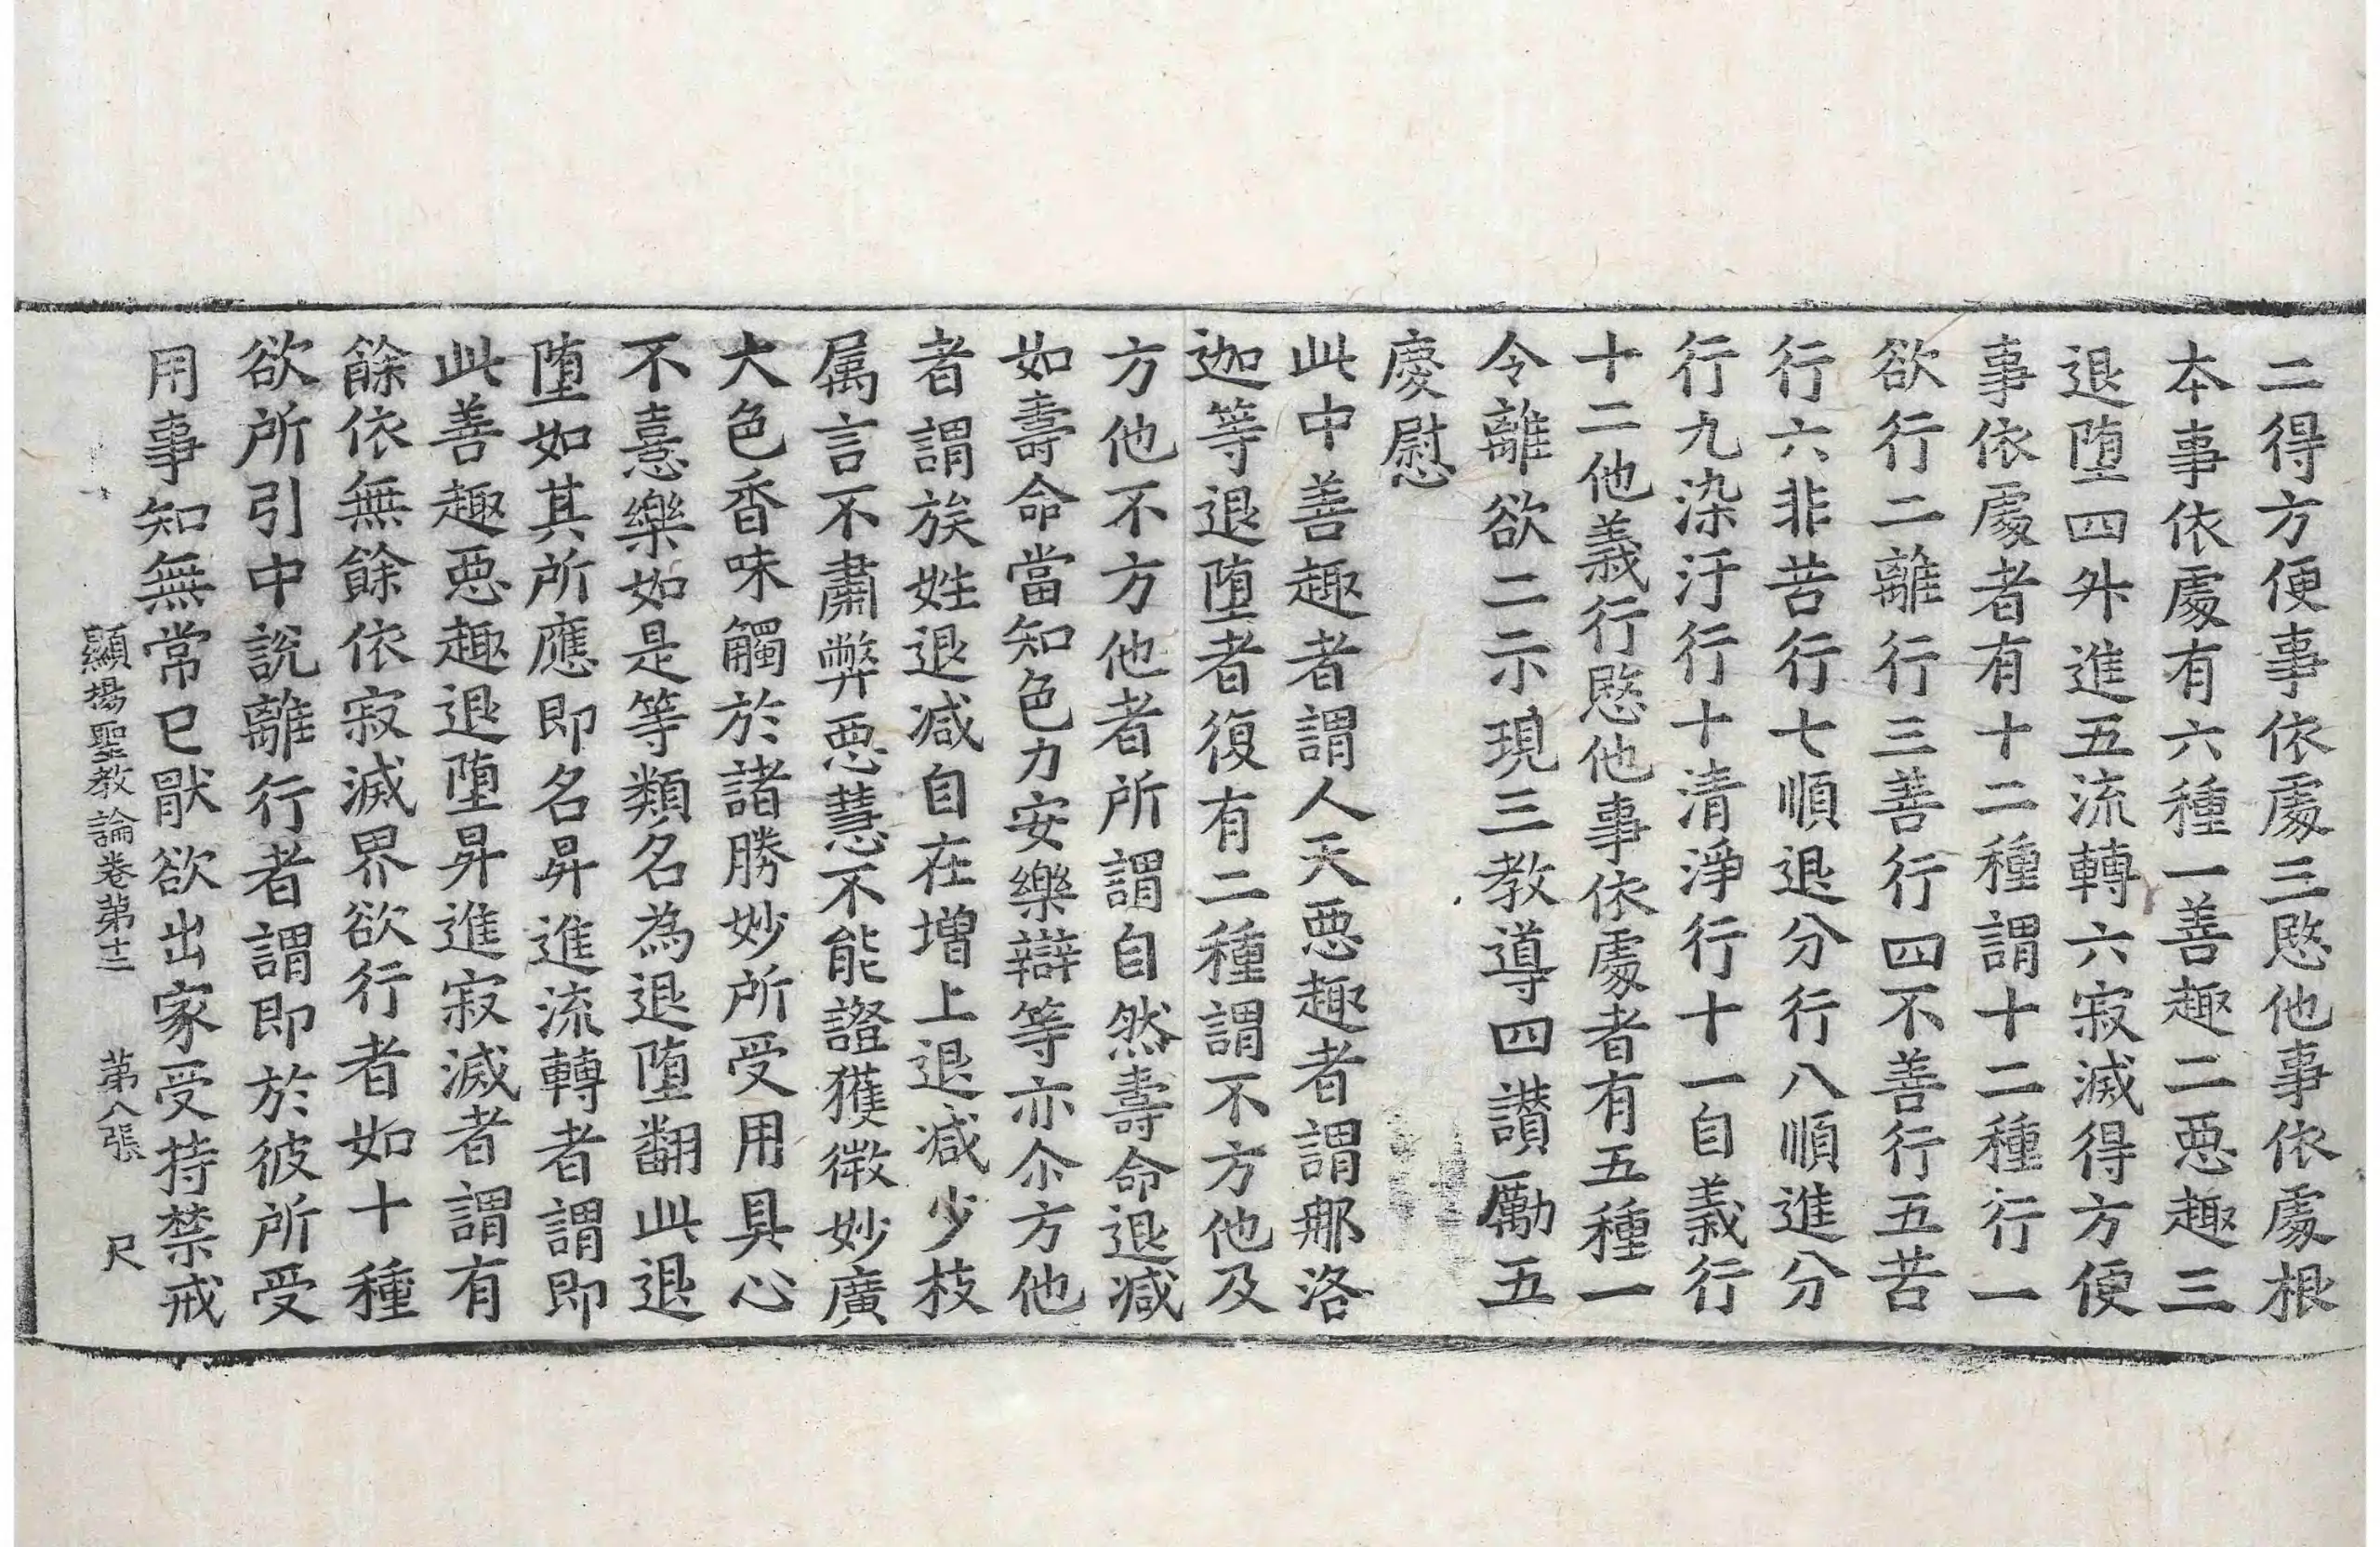 二得方便事依處三愍他事依處根
本事依處有六種一善趣二惡趣三
退墮四升進五流轉六寂滅得方便
事依處者有十二種謂十二種行一
欲行二離行三善行四不善行五苦
行六非苦行七順退分行八順進分
行九染汙行十清淨行十一自義行
十二他義行愍他事依處者有五種一
令離欲二示現三教導四讚勵五
慶慰
此中善趣者謂人天惡趣者謂那洛
迦等退墮者復有二種謂不方他及
方他不方他者所謂自然壽命退減
如壽命當知色力安樂辯等亦尒方他
者謂族姓退減自在增上退減少枝
属言不肅弊惡慧不能證獲微妙廣
大色香味觸於諸勝妙所受用具心
不憙樂如是等類名為退墮翻此退
墮如其所應即名昇進流轉者謂即
此善趣惡趣退墮昇進寂滅者謂有
餘依無餘依寂滅界欲行者如十種
欲所引中說離行者謂即於彼所受
用事知無常已猒欲出家受持禁戒
顯揚聖教論卷第十二 第八張 尺